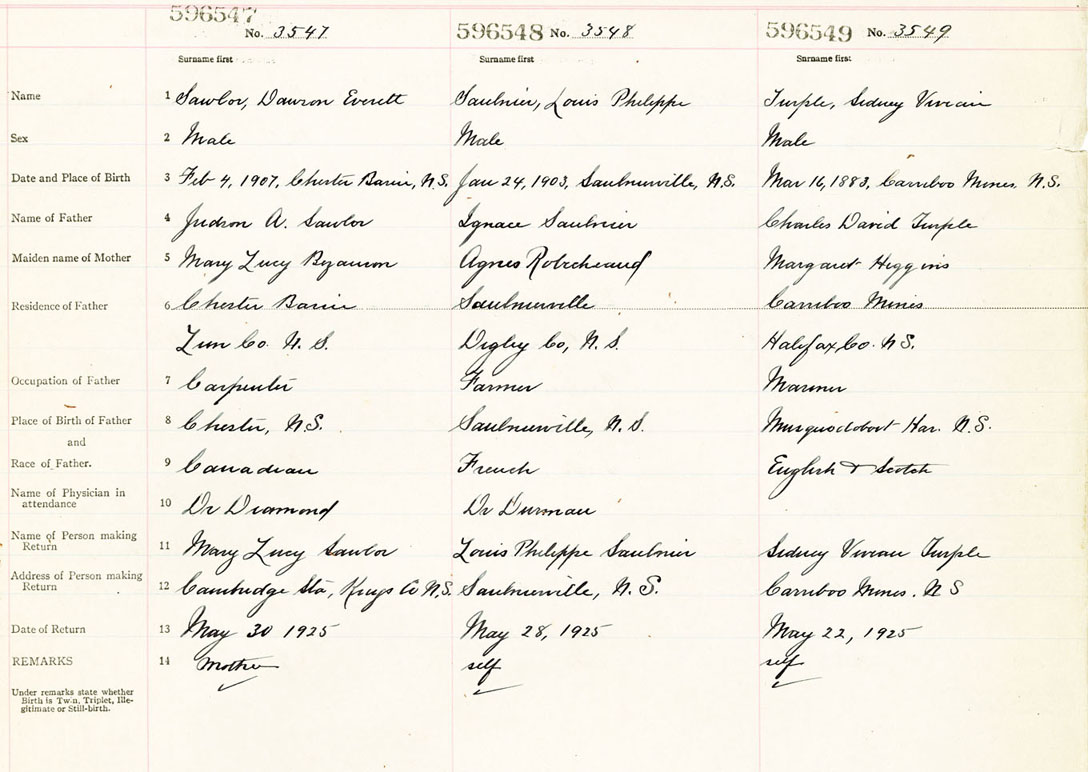 596547 596548 596549
No. 3547 No. 3548 No. 3549
Surname first Surname first Surname first
Name 1 Sawlor, Dawson Everett Saulnier, Louis Philippe Turple, Sidney Vivian
Sex 2 Male Male Male
Date and Place of Birth 3 Feb 4, 1907, Chester Basin, N.S. Jan 24, 1903, Saulnierville, N.S. Mar 16, 1883, Carriboo Mines, N.S.
Name of Father 4 Judson A. Sawlor Ignace Saulnier Charles David Turple
Maiden name of Mother 5 Mary Lucy Bezanson Agnes Robicheaud Margaret Higgins
Residence of Father 6 Chester Basin Saulnierville Carriboo Mines
Lun Co. N.S. Digby Co, N.S. Halifax Co. N.S.
Occupation of Father 7 Carpenter Farmer Mariner
Place of Birth of Father 8 Chester, N.S. Saulnierville, N.S. Musquodoboit Har. N.S.
and
Race of Father. 9 Canadian French English & Scotch
Name of Physician in
attendance 10 Dr Diamond Dr
Name of Person making
Return 11 Mary Lucy Sawlor Louis Philippe Saulnier Sidney Vivian Turple
Address of Person making
Return 12 Cambridge Sta, Kings Co N.S. Saulnierville, N.S. Carriboo Mines. N S
Date of Return 13 May 30 1925 May 28, 1925 May 22, 1925
REMARKS 14 Mother self self
Under remarks state whether
Birth is Twin, Triplet, Ille-
gitimate or Still-birth.